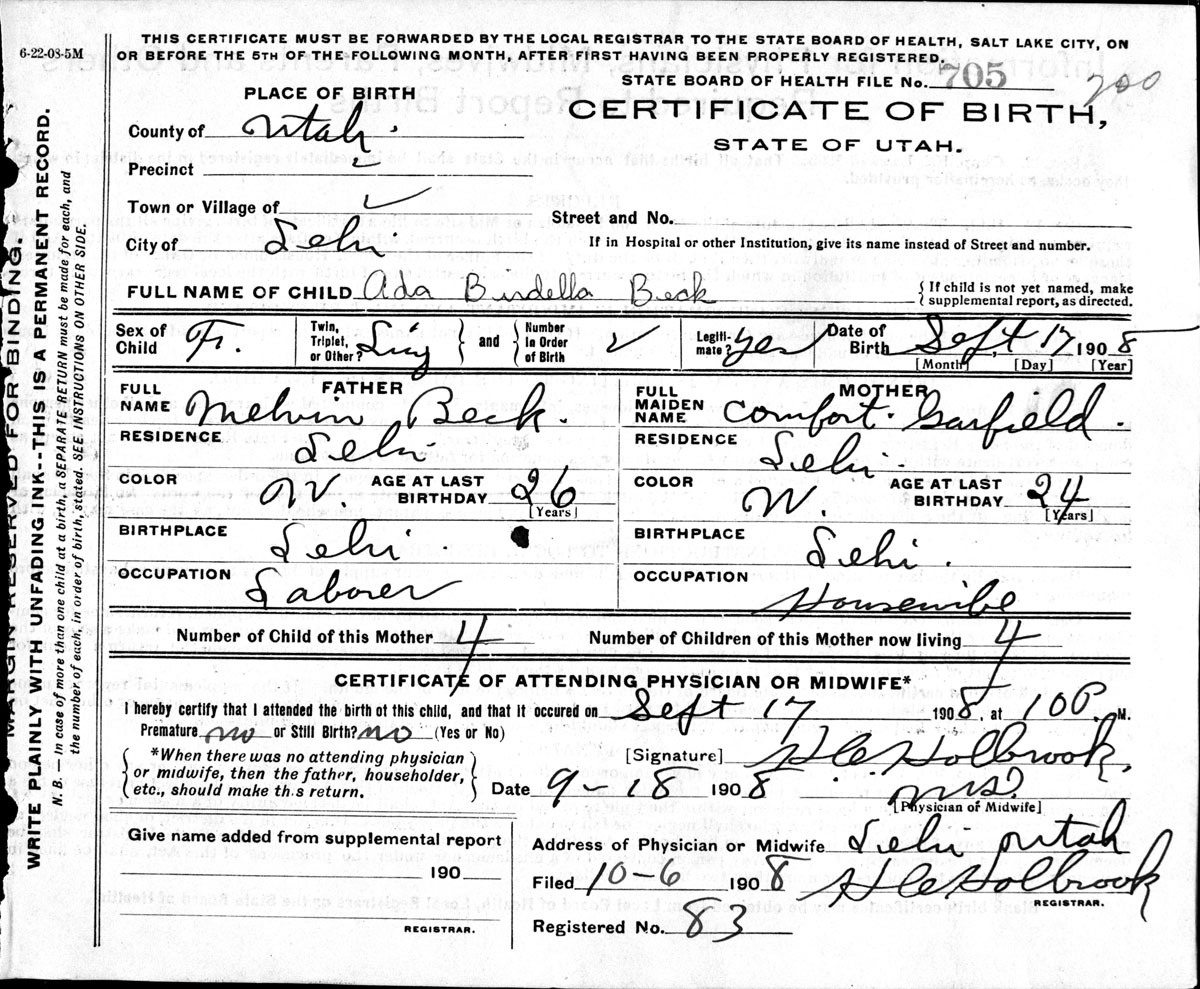 6-22-08-5M
THIS CERTIFICATE MUST BE FORWARDED BY THE LOCAL REGISTRAR TO THE STATE BOARD OF HEALTH, SALT LAKE CITY, ON
OR BEFORE THE 5TH OF THE FOLLOWING MONTH, AFTER FIRST HAVING BEEN PROPERLY REGISTERED.
STATE BOARD OF HEALTH FILE No. 705
200
PLACE OF BIRTH
CERTIFICATE OF BIRTH,
STATE OF UTAH.
County of Utah.
Precinct
Town or Village of
Street and No.
City of Lehi
If in Hospital or other Institution, give its name instead of Street and number.
FULL NAME OF CHILD Ada Burdella Beck
{ If child is not yet named, make
supplemental report, as directed.
Sex of Child F.
Twin, Triplet, or Other? Sing } and { Number in Order of Birth
Legitimate? yes
Date of Birth Sept 17 1908
[Month] [Day] [Year]
FATHER
FULL NAME Melvin Beck.
RESIDENCE Lehi
COLOR W. AGE AT LAST BIRTHDAY 26
[Years]
BIRTHPLACE Lehi.
OCCUPATION Laborer
MOTHER
FULL MAIDEN NAME Comfort Garfield.
RESIDENCE Lehi.
COLOR W. AGE AT LAST BIRTHDAY 24
[Years]
BIRTHPLACE Lehi.
OCCUPATION Housewife
Number of Child of this Mother 4 Number of Children of this Mother now living 4
CERTIFICATE OF ATTENDING PHYSICIAN OR MIDWIFE*
I hereby certify that I attended the birth of this child, and that it occured on Sept 17 1908, at 1 00 P. M.
Premature no or Still Birth? no (Yes or No)
{ *When there was no attending physician
or midwife, then the father, householder,
etc., should make th.s return. }
[Signature] Holbrook.
Date 9-18 1908 MD.
[Physician or Midwife]
Give name added from supplemental report
190
REGISTRAR.
Address of Physician or Midwife Lehi Utah
Filed 10-6 1908 Holbrook
REGISTRAR.
Registered No. 83
MARGIN RESERVED FOR BINDING.
WRITE PLAINLY WITH UNFADING INK--THIS IS A PERMANENT RECORD.
N. B. In case of more than one child at a birth, a SEPARATE RETURN must be made for each, and
the number of each, in order of birth, stated. SEE INSTRUCTIONS ON OTHER SIDE.